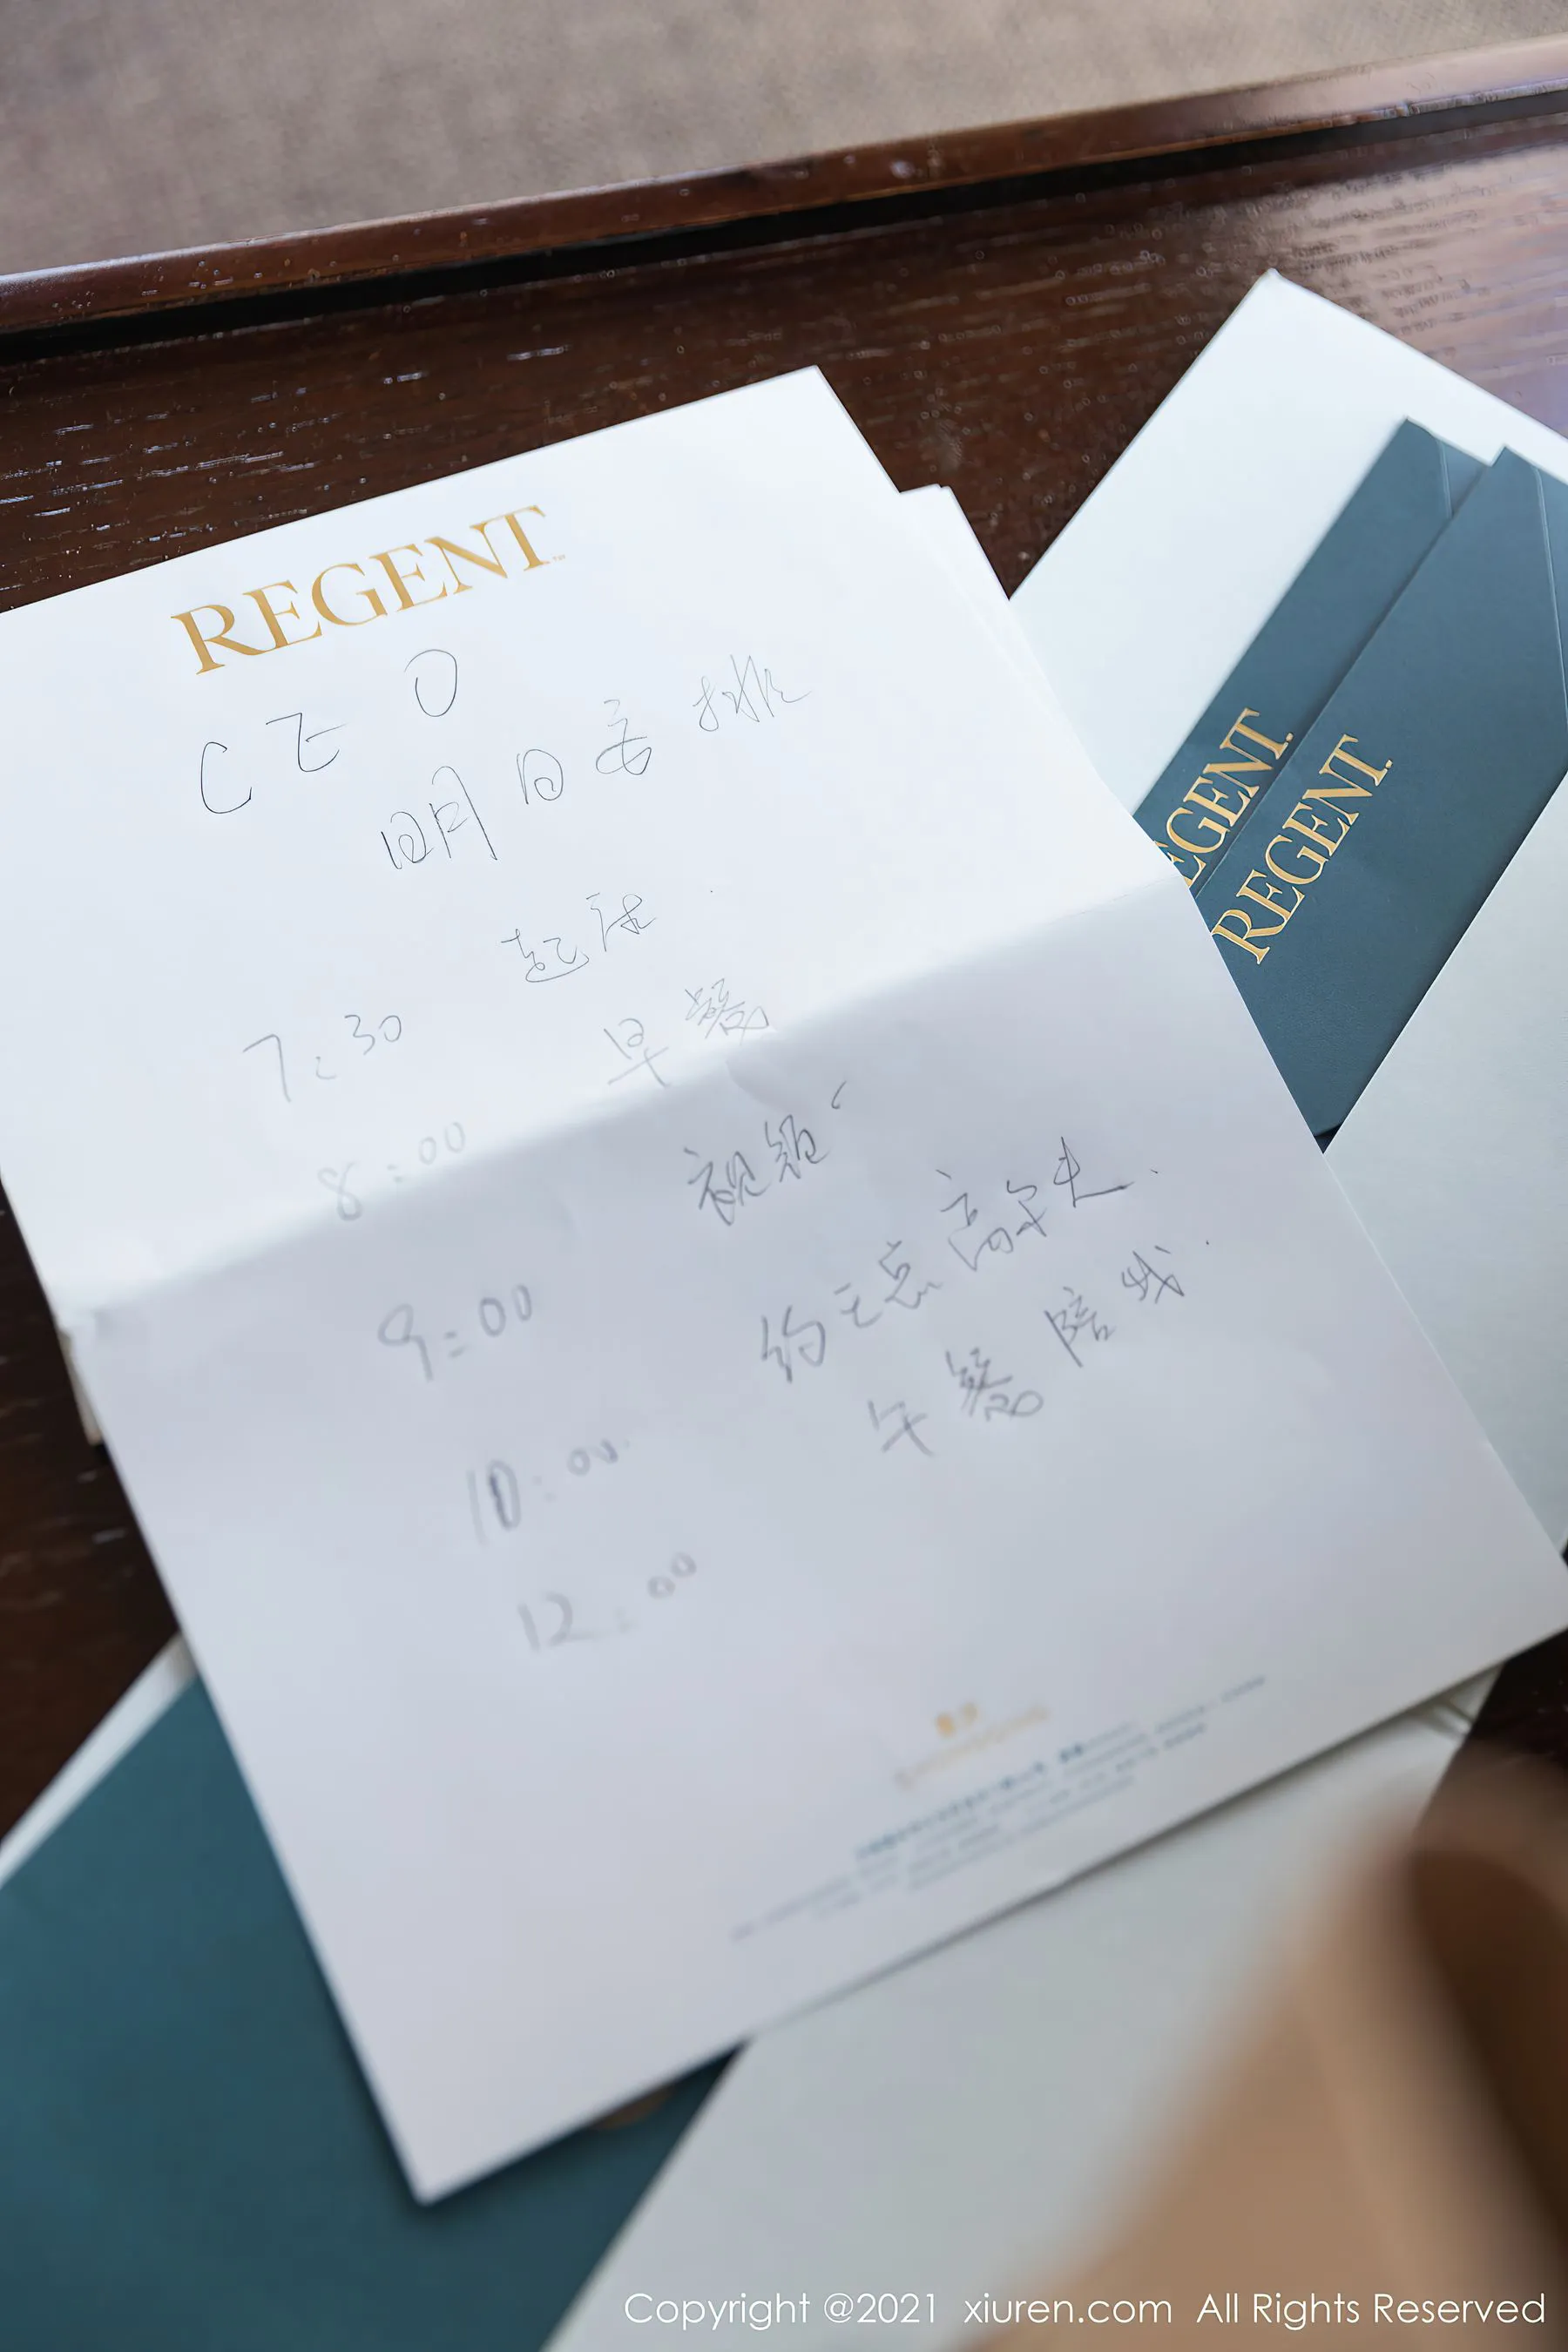 REGENT
CEO
明日安排
7:30 起床
8:00 早餐
9:00 视频
10:00 约王总高尔夫.
12:00 午餐陪我.
EGENT
REGENT
Copyright @2021 xiuren.com All Rights Reserved